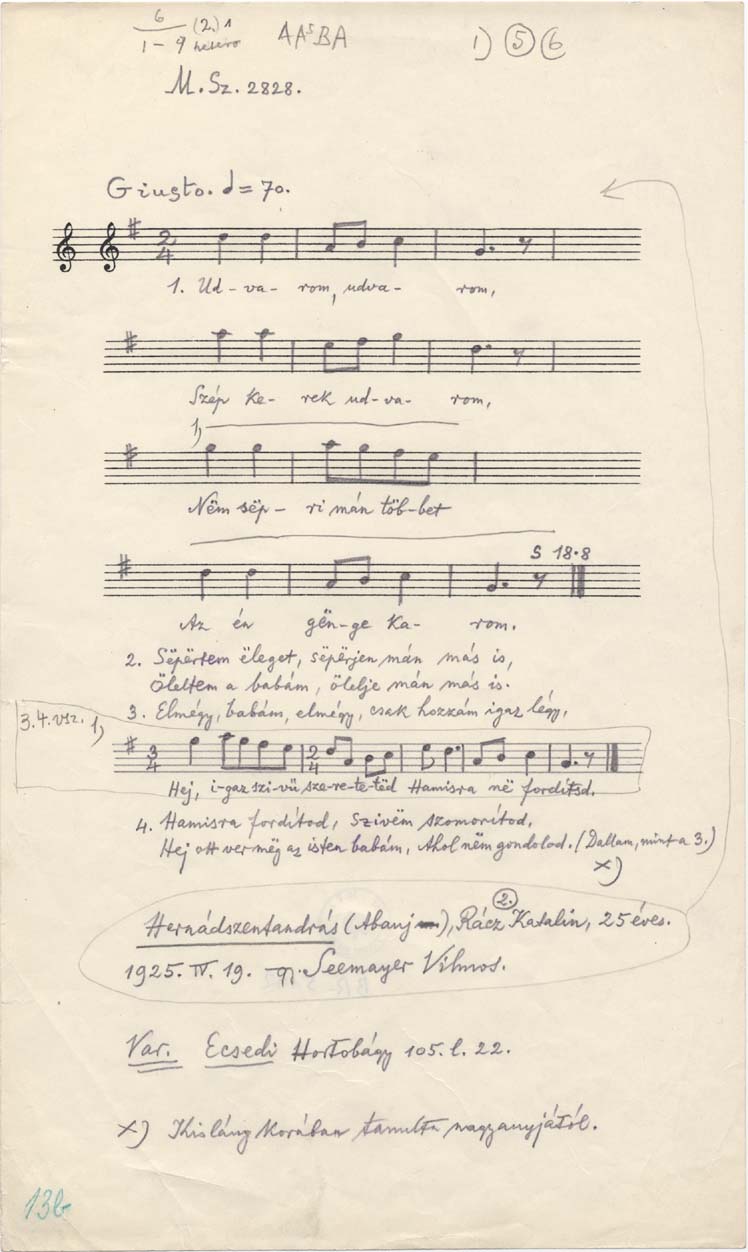 6 (2.) 1
1 - 9 hetero
AA⁵BA
1) 5 6
M. Sz. 2828.
Giusto. = 70.
2
4
1. Ud - va - rom, udva - rom,
Szép ke - rek ud - va - rom,
1)
Nëm sëp - ri mán töb - bet
S 18·8
Az én gën - ge ka - rom.
2. Sëpërtem ëleget, sëpërjen mán más is,
Öleltem a babám, ölelje mán más is.
3. Elmégy, babám, elmégy, csak hozzám igaz légy,
3.4. vsz. 1)
3
4
2
4
Hej, i-gaz szi-vü sze-re-te-tëd Hamisra në fordítsd.
4. Hamisra fordítod, Szivëm szomorítod,
Hej ott ver mëg az isten babám, Ahol nëm gondolod. (Dallam, mint a 3.)
x)
2.
Hernádszentandrás (Abauj), Rácz Katalin, 25 éves.
1925. IV. 19. gy. Seemayer Vilmos.
Var. Ecsedi Hortobágy 105. l. 22.
x) Kislány korában tanulta nagyanyjától.
13b